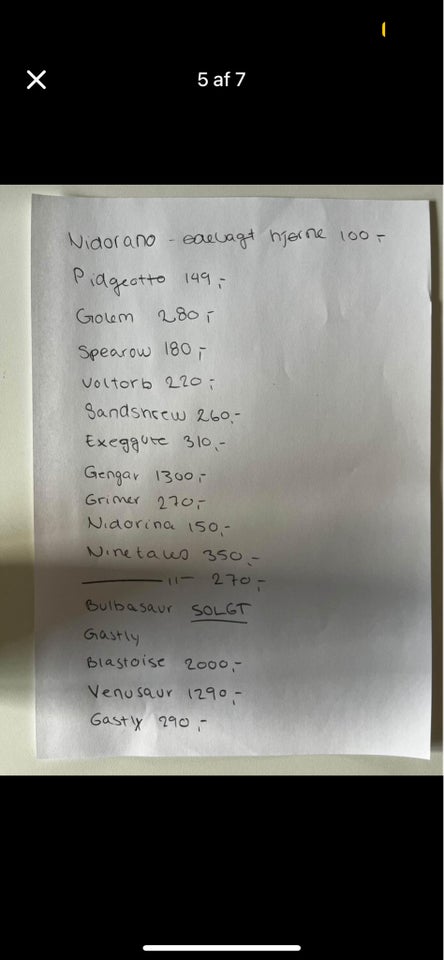 5 af 7
Nidorano - ødelagt hjørne 100,-
Pidgeotto 149,-
Golem 280,-
Spearow 180,-
Voltorb 220,-
Sandshrew 260,-
Exeggute 310,-
Gengar 1300,-
Grimer 270,-
Nidorina 150,-
Ninetales 350,-
———— 11— 270,-
Bulbasaur SOLGT
Gastly
Blastoise 2000,-
Venusaur 1290,-
Gastly 290,-